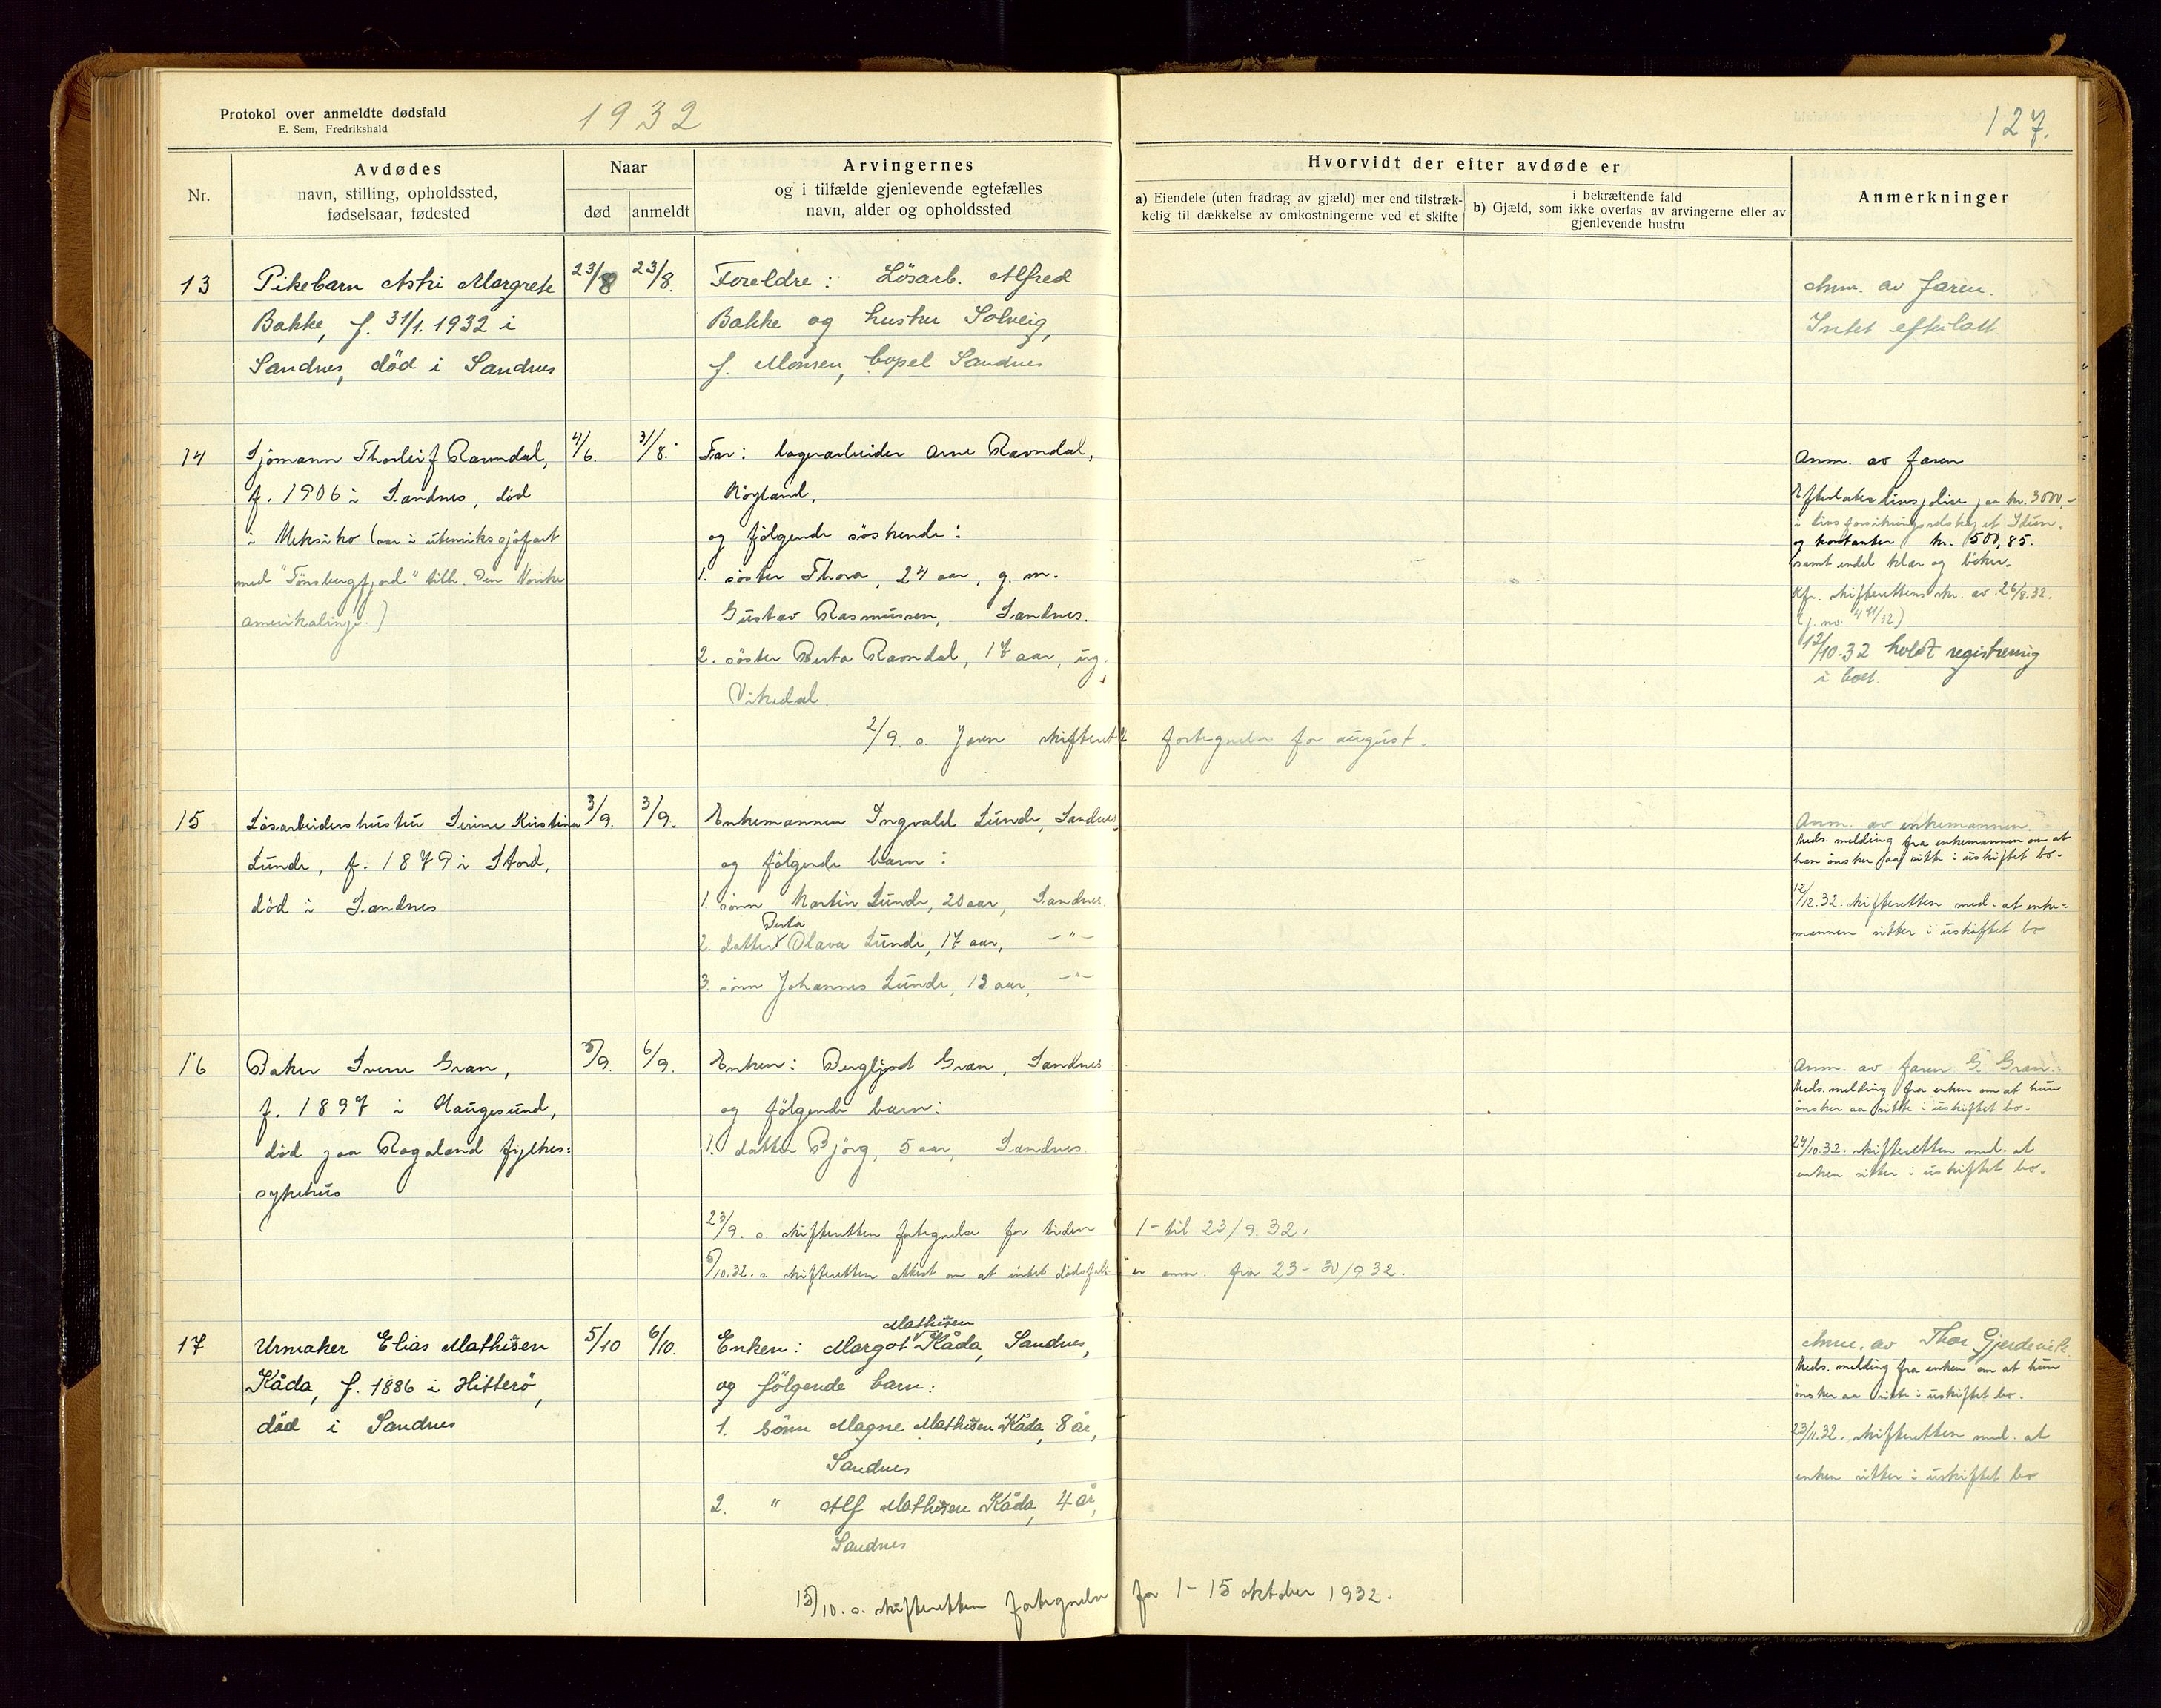 Protokol over anmeldte dødsfald
E. Sem, Fredrikshald
1932
127.
Nr.
Avdødes
navn, stilling, opholdssted,
fødselsaar, fødested
Naar
død
anmeldt
Arvingernes
og i tilfælde gjenlevende egtefælles
navn, alder og opholdssted
Hvorvidt der efter avdøde er
a) Eiendele (uten fradrag av gjæld) mer end tilstræk-
kelig til dækkelse av omkostningerne ved et skifte
i bekræftende fald
b) Gjæld, som ikke overtas av arvingerne eller av
gjenlevende hustru
Anmerkninger
13
Pikebarn Astri Margrete
Bakke, f. 31/1. 1932 i
Sandnes, död i Sandnes
23/8
23/8.
Foreldre: Lösarb. Alfred
Bakke og hustru Solveig,
f. Monsen, bopel Sandnes
Anm. av faren.
Intet efterlatt
14
Sjömann Thorleif Ravndal,
f. 1906 i Sandnes, död
i Meksiko (var i utenrikssjöfart
med "Tönsbergfjord" tilh. Den Norske
Amerikalinje.)
4/6.
31/8.
Far: lagerarbeider Arne Ravndal,
Höyland,
og fölgende söskende:
1. söster Thora, 24 aar, g. m.
Gustav Rasmussen, Sandnes.
2. söster Berta Ravndal, 17 aar, ug.,
Vikedal.
Anm. av faren
Efterlater livspolise paa kr. 3000,-
i livsforsikringsselskapet Idun.
og kontanter kr. 500,85.
samt endel klær og böker.
Kfr. skifterettens skr. av 26/8.32.
(j. no. 441/32)
12/10.32 holdt registrering
i boet.
2/9. s. Jæren skifterett fortegnelse for august.
15
Lösarbeiderhustru Serine Kristina
Lunde, f. 1879 i Stord,
död i Sandnes
3/9.
3/9.
Enkemannen Ingvald Lunde, Sandnes,
og fölgende barn:
1. sönn Martin Lunde, 20 aar, Sandnes.
2. datter Berta Olava Lunde, 17 aar, -"-
3. sönn Johannes Lunde, 13 aar, -"-
Anm. av enkemannen.
Meds. melding fra enkemannen om at
han önsker aa sitte i uskiftet bo.
12/12.32. skifteretten med. at enke=
mannen sitter i uskiftet bo
16
Baker Sverre Gran,
f. 1897 i Haugesund,
död paa Rogaland fylkes=
sykehus
5/9.
6/9.
Enken: Bergljot Gran, Sandnes
og fölgende barn:
1. datter Björg, 5 aar, Sandnes
Anm. av faren G. Gran.
Meds. melding fra enken om at hun
önsker aa sitte i uskiftet bo.
24/10.32. skifteretten med. at
enken sitter i uskiftet bo.
23/9. s. skifteretten fortegnelse for tiden 1- til 23/9.32.
5/10.32. s. skifteretten attest om at intet dödsfall er anm. fra 23-30/9 32.
17
Urmaker Elias Mathisen
Kåda, f. 1886 i Hitterö,
död i Sandnes
5/10
6/10.
Enken: Margot Mathisen Kåda, Sandnes,
og fölgende barn:
1. Sönn Magne Mathisen Kåda, 8 år,
Sandnes
2. " Alf Mathisen Kåda, 4 år,
Sandnes
Anm. av Thor Gjerdevik.
Meds. melding fra enken om at hun
önsker aa sitte i uskiftet bo.
23/11.32. skifteretten med. at
enken sitter i uskiftet bo
15/10. s. skifteretten fortegnelse for 1-15 oktober 1932.